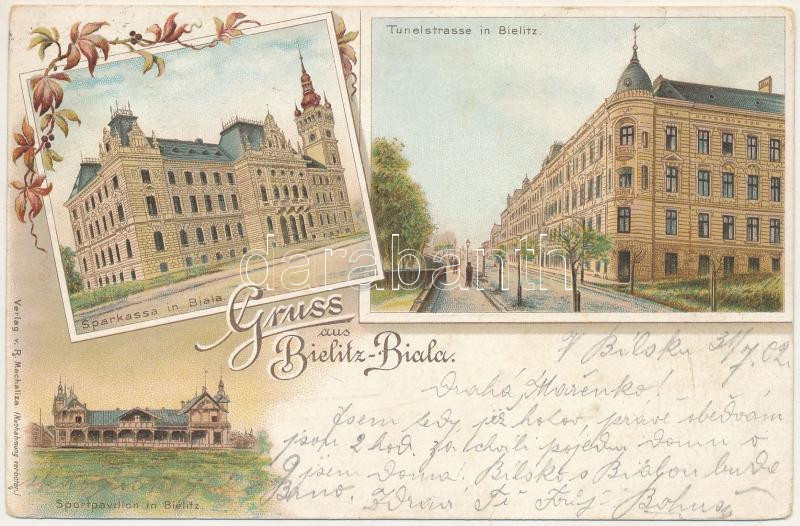 Tunelstrasse in Bielitz.
Sparkassa in Biala.
Gruss
aus
Bielitz-Biala.
Sportpavilion in Bielitz.
Verlag v. R. Machaliza (Nachahmung verboten)
darabanth
V Bílsku 31/7 02
Drahá Mařenko!
Jsem tedy již hotov, právě obědvám
jsou 2 hod. za chvíli pojedu domů o
9 jsem doma. Bílsko s Bialou bude
Brno. Zdraví Tě Tvůj Bohuš